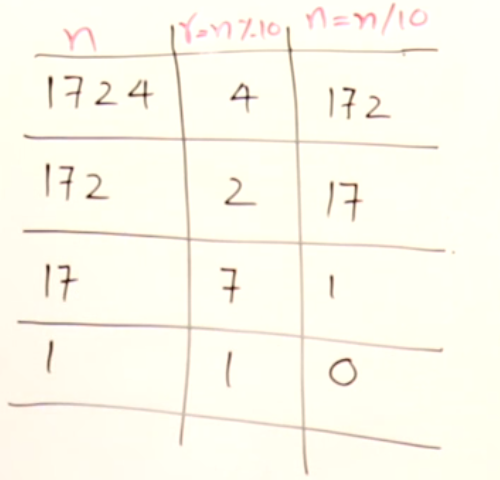 n r=n%10 n=n/10
1724 4 172
172 2 17
17 7 1
1 1 0